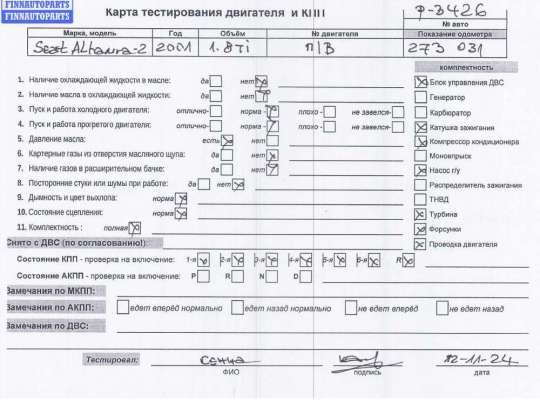 FINNAUTOPARTS
FINNAUTOPARTS
Карта тестирования двигателя и КПП
Ф-3426
№ авто
Марка, модель Год Объём № двигателя Показание одометра
Seat 2001 1.8Ti П/В 273 031
комплектность
1. Наличие охлаждающей жидкости в масле: да нет
Блок управления ДВС
2. Наличие масла в охлаждающей жидкости: да нет
Генератор
3. Пуск и работа холодного двигателя: отлично- норма - плохо - не завелся-
Карбюратор
4. Пуск и работа прогретого двигателя: отлично- норма - плохо - не завелся-
Катушка зажигания
5. Давление масла: есть нет
Компрессор кондиционера
6. Картерные газы из отверстия масляного щупа: да нет
Моновпрыск
7. Наличие газов в расширительном бачке: да нет
Насос г/у
8. Посторонние стуки или шумы при работе: да нет
Распределитель зажигания
9. Дымность и цвет выхлопа: норма
ТНВД
10. Состояние сцепления: норма
Турбина
11. Комплектность : полная
Форсунки
Снято с ДВС (по согласованию!):
Проводка двигателя
Состояние КПП - проверка на включение: 1-я 2-я 3-я 4-я 5-я 6-я R
Состояние АКПП - проверка на включение: P R N D
Замечания по МКПП:
Замечания по АКПП: едет вперёд нормально едет назад нормально не едет вперёд не едет назад
Замечания по ДВС:
Тестировал: 12-11-24
ФИО подпись дата